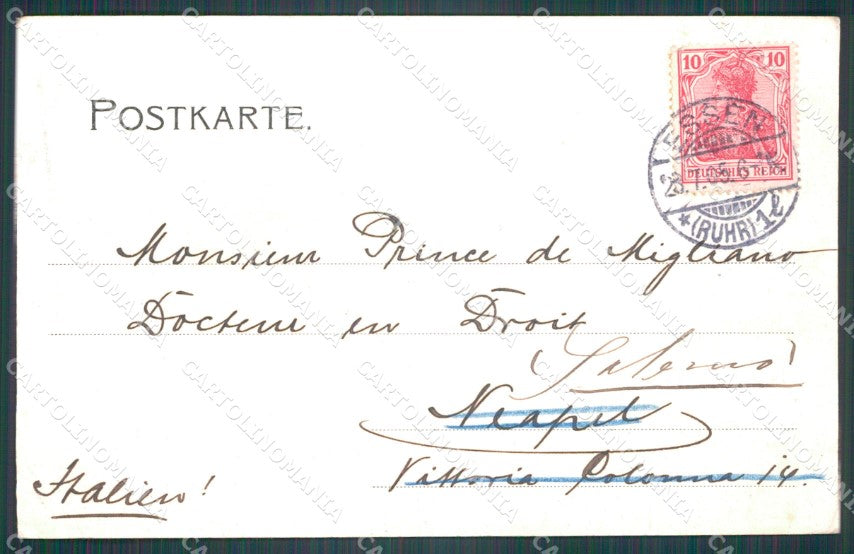 10 10
DEUTSCHES REICH
ESSEN
(RUHR) 1l
POSTKARTE.
Monsieur Prince de Migliano
Docteur en Droit
Salerno
Neapel
Vittoria Colonna 14.
Italien!
CARTOLINOMANIA